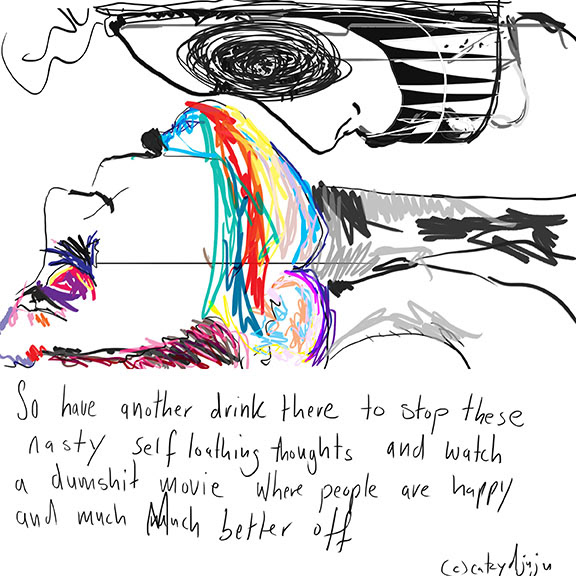 So have another drink there to stop these
nasty self loathing thoughts and watch
a dumshit movie where people are happy
and much Much better off
(c)catzdjuju